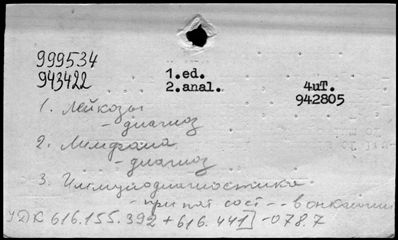 999534
943422
1.ed.
2.anal.
4uT.
942805
1. Лейкозы
- диагноз
2. Лимфома
- диагноз
3. Иммунодиагностика
- при пат. сост. - в онкологии
УДК 616.155.392+616.441]-078.7